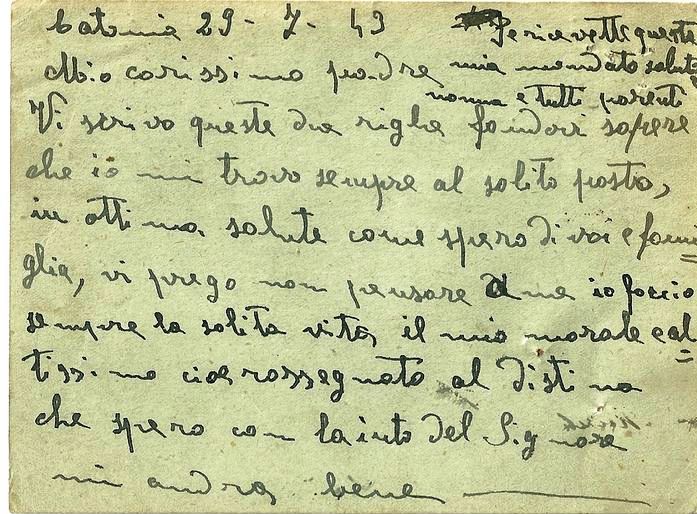 Catania 29 - 7 - 43
Se ricevette queste
mia mandato saluta
nonna e tutti parenti
Mio carissimo padre
Vi scrivo queste due righe fandovi sapere
che io mi trovo sempre al solito posto,
in ottima salute come spero di voi e fami
glia, vi prego non pensare a me io faccio
sempre la solita vita, il mio morale e al
tissimo cioe rassegnato al distino
che spero con laiuto del Signore
mi andra bene